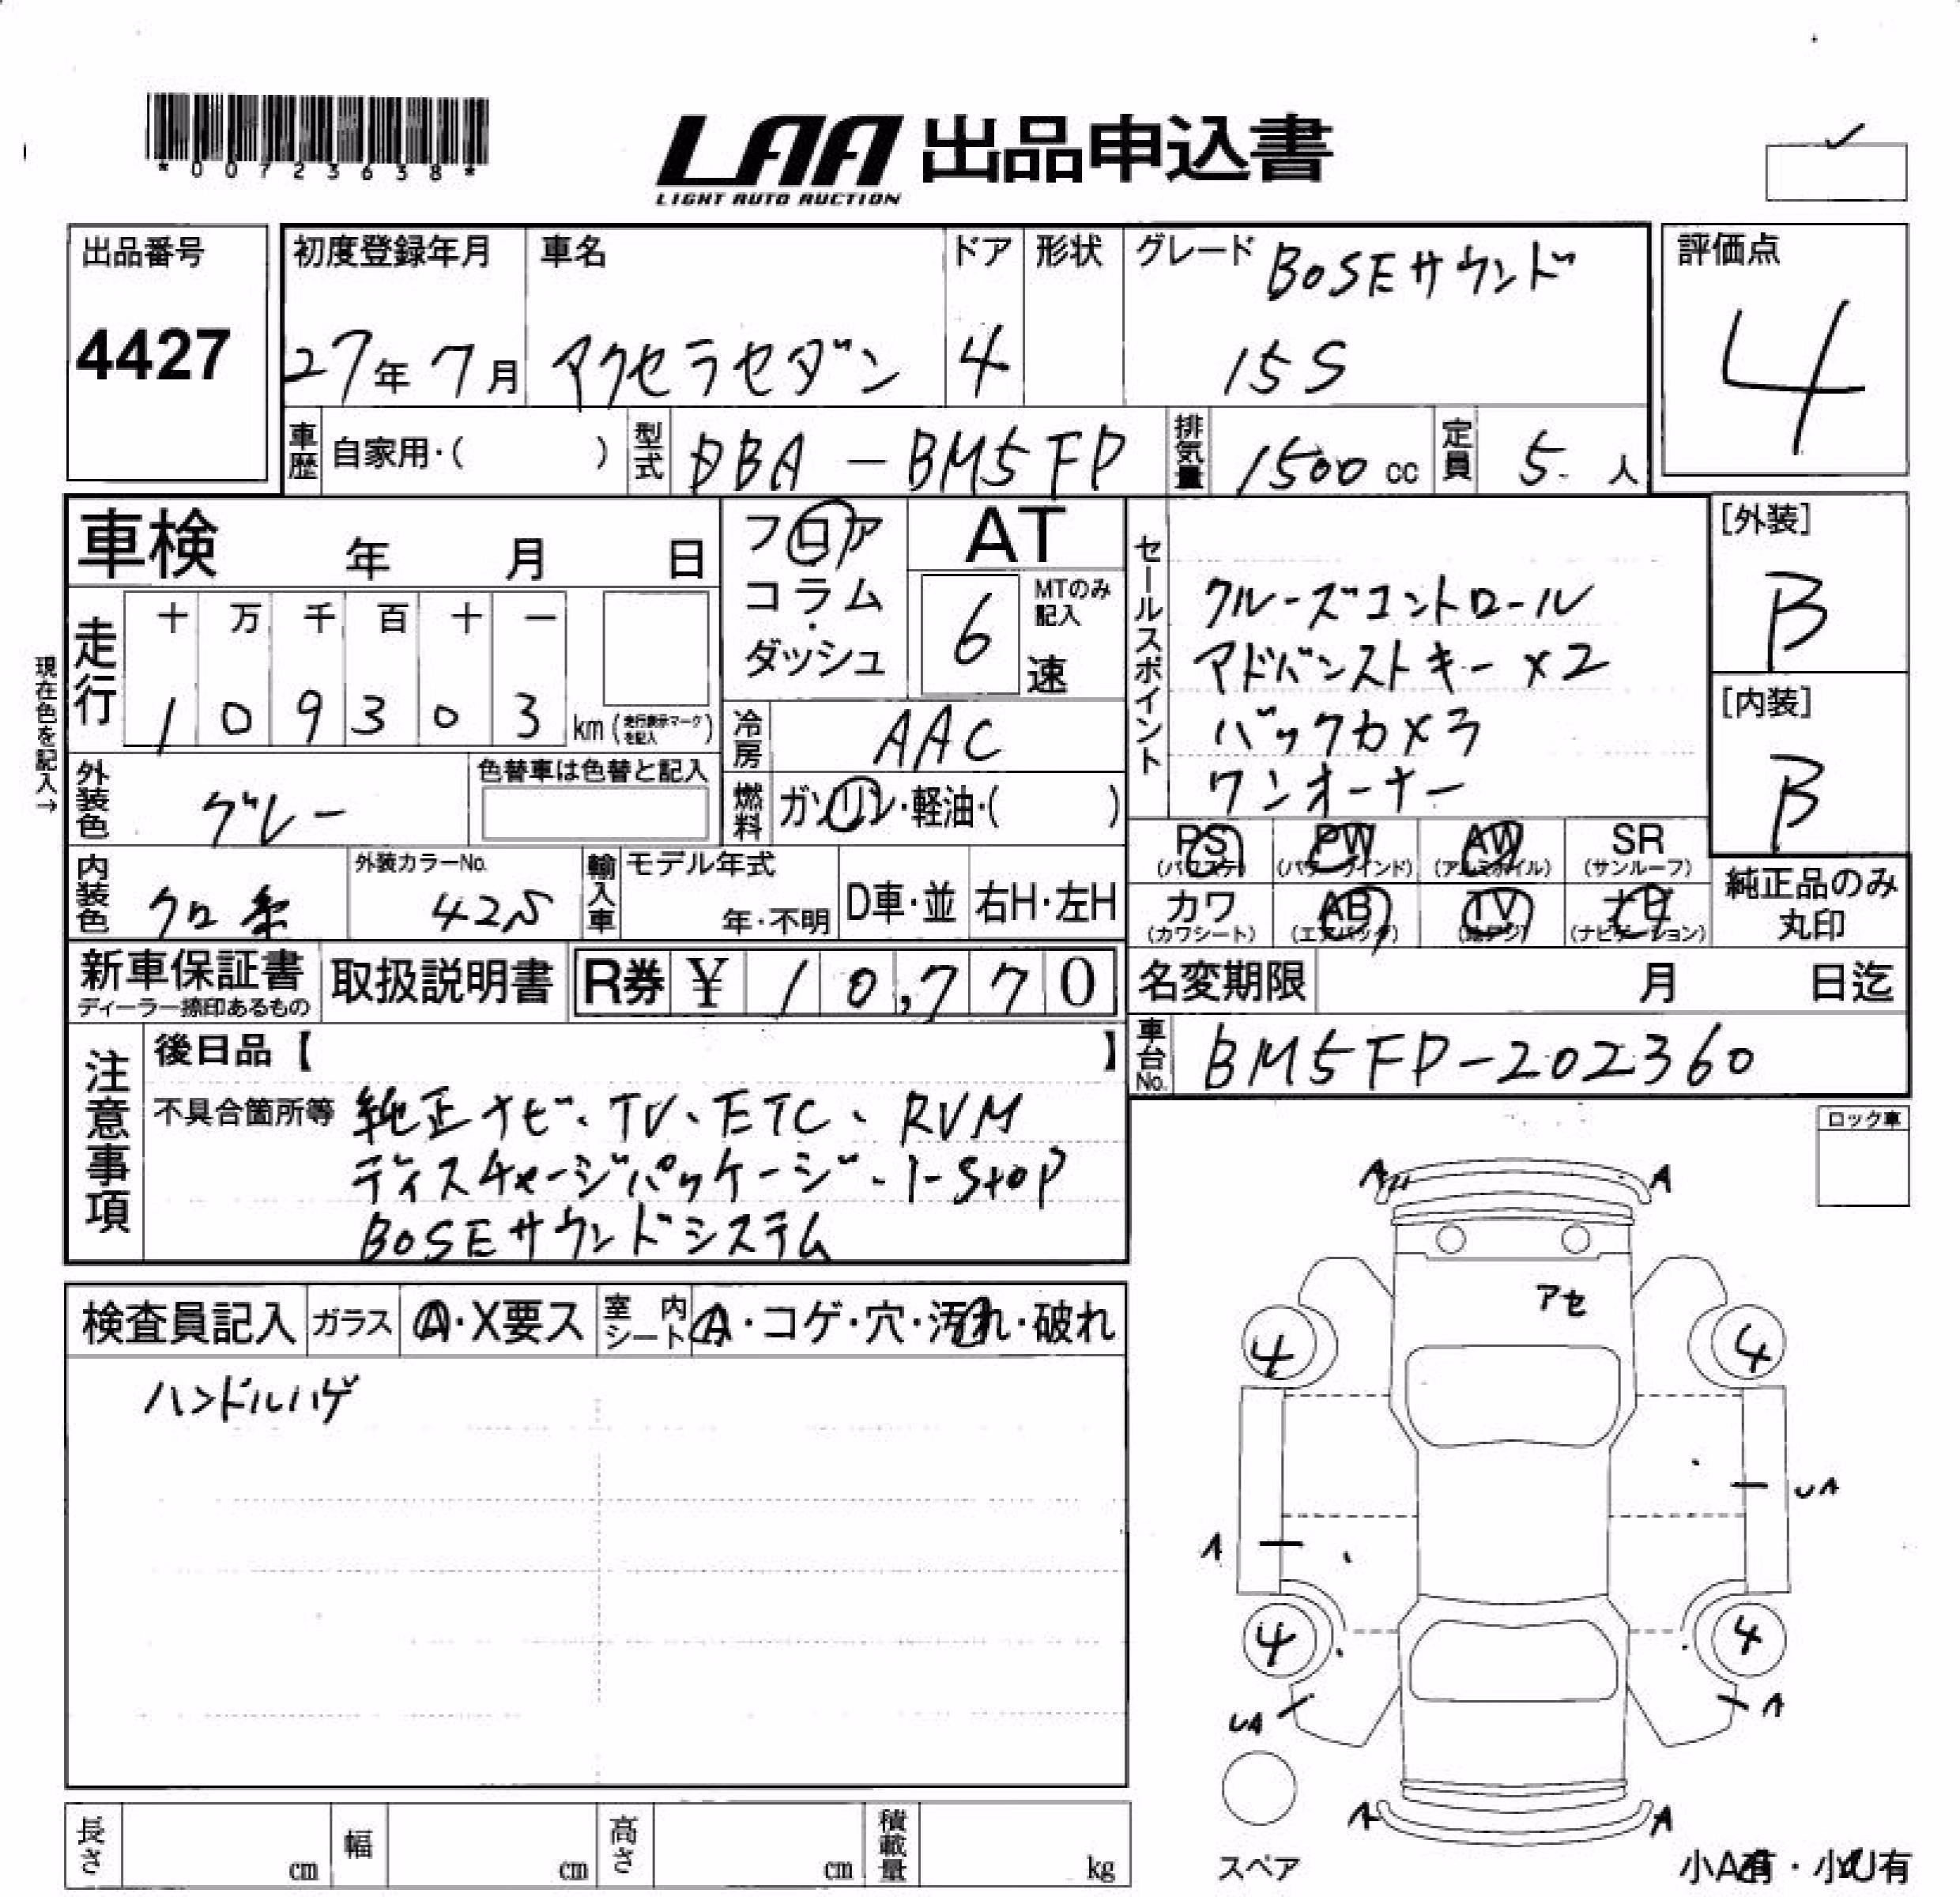 *00723638*
LAA 出品申込書
LIGHT AUTO AUCTION
出品番号
4427
初度登録年月
27年7月
車名
アクセラセダン
ドア
4
形状
グレード BOSEサウンド
15S
評価点
4
車歴 自家用・( )
型式 DBA-BM5FP
排気量 1500cc
定員 5人
車検 年 月 日
フロア
コラム
・
ダッシュ
AT
6
MTのみ
記入
速
現在色を記入→
走行
十 万 千 百 十 一
1 0 9 3 0 3 km (走行表示マークを記入)
冷房 AAC
外装色 グレー
色替車は色替と記入
燃料 ガソリン・軽油・( )
内装色 クロ系
外装カラーNo.
42S
輸入車
モデル年式
年・不明
D車・並
右H・左H
セールスポイント
クルーズコントロール
アドバンストキー×2
バックカメラ
ワンオーナー
[外装]
B
[内装]
B
PS (パワステ)
PW (パワーウインド)
AW (アルミホイル)
SR (サンルーフ)
カワ (カワシート)
AB (エアバッグ)
TV (地デジ)
ナビ (ナビゲーション)
純正品のみ
丸印
新車保証書
ディーラー捺印あるもの
取扱説明書
R券 ¥ 10,770
名変期限 月 日迄
車台No. BM5FP-202360
注意事項
後日品【 】
不具合箇所等 純正ナビ、TV、ETC、RVM
ディスチャージパッケージ、i-stop
BOSEサウンドシステム
ロック車
検査員記入 ガラス A・X要ス 室内シート A・コゲ・穴・汚れ・破れ
ハンドルハゲ
A A
アセ
4 4
UA
A
4 4
UA A
A A
スペア
小A有・小U有
長さ cm 幅 cm 高さ cm 積載量 kg